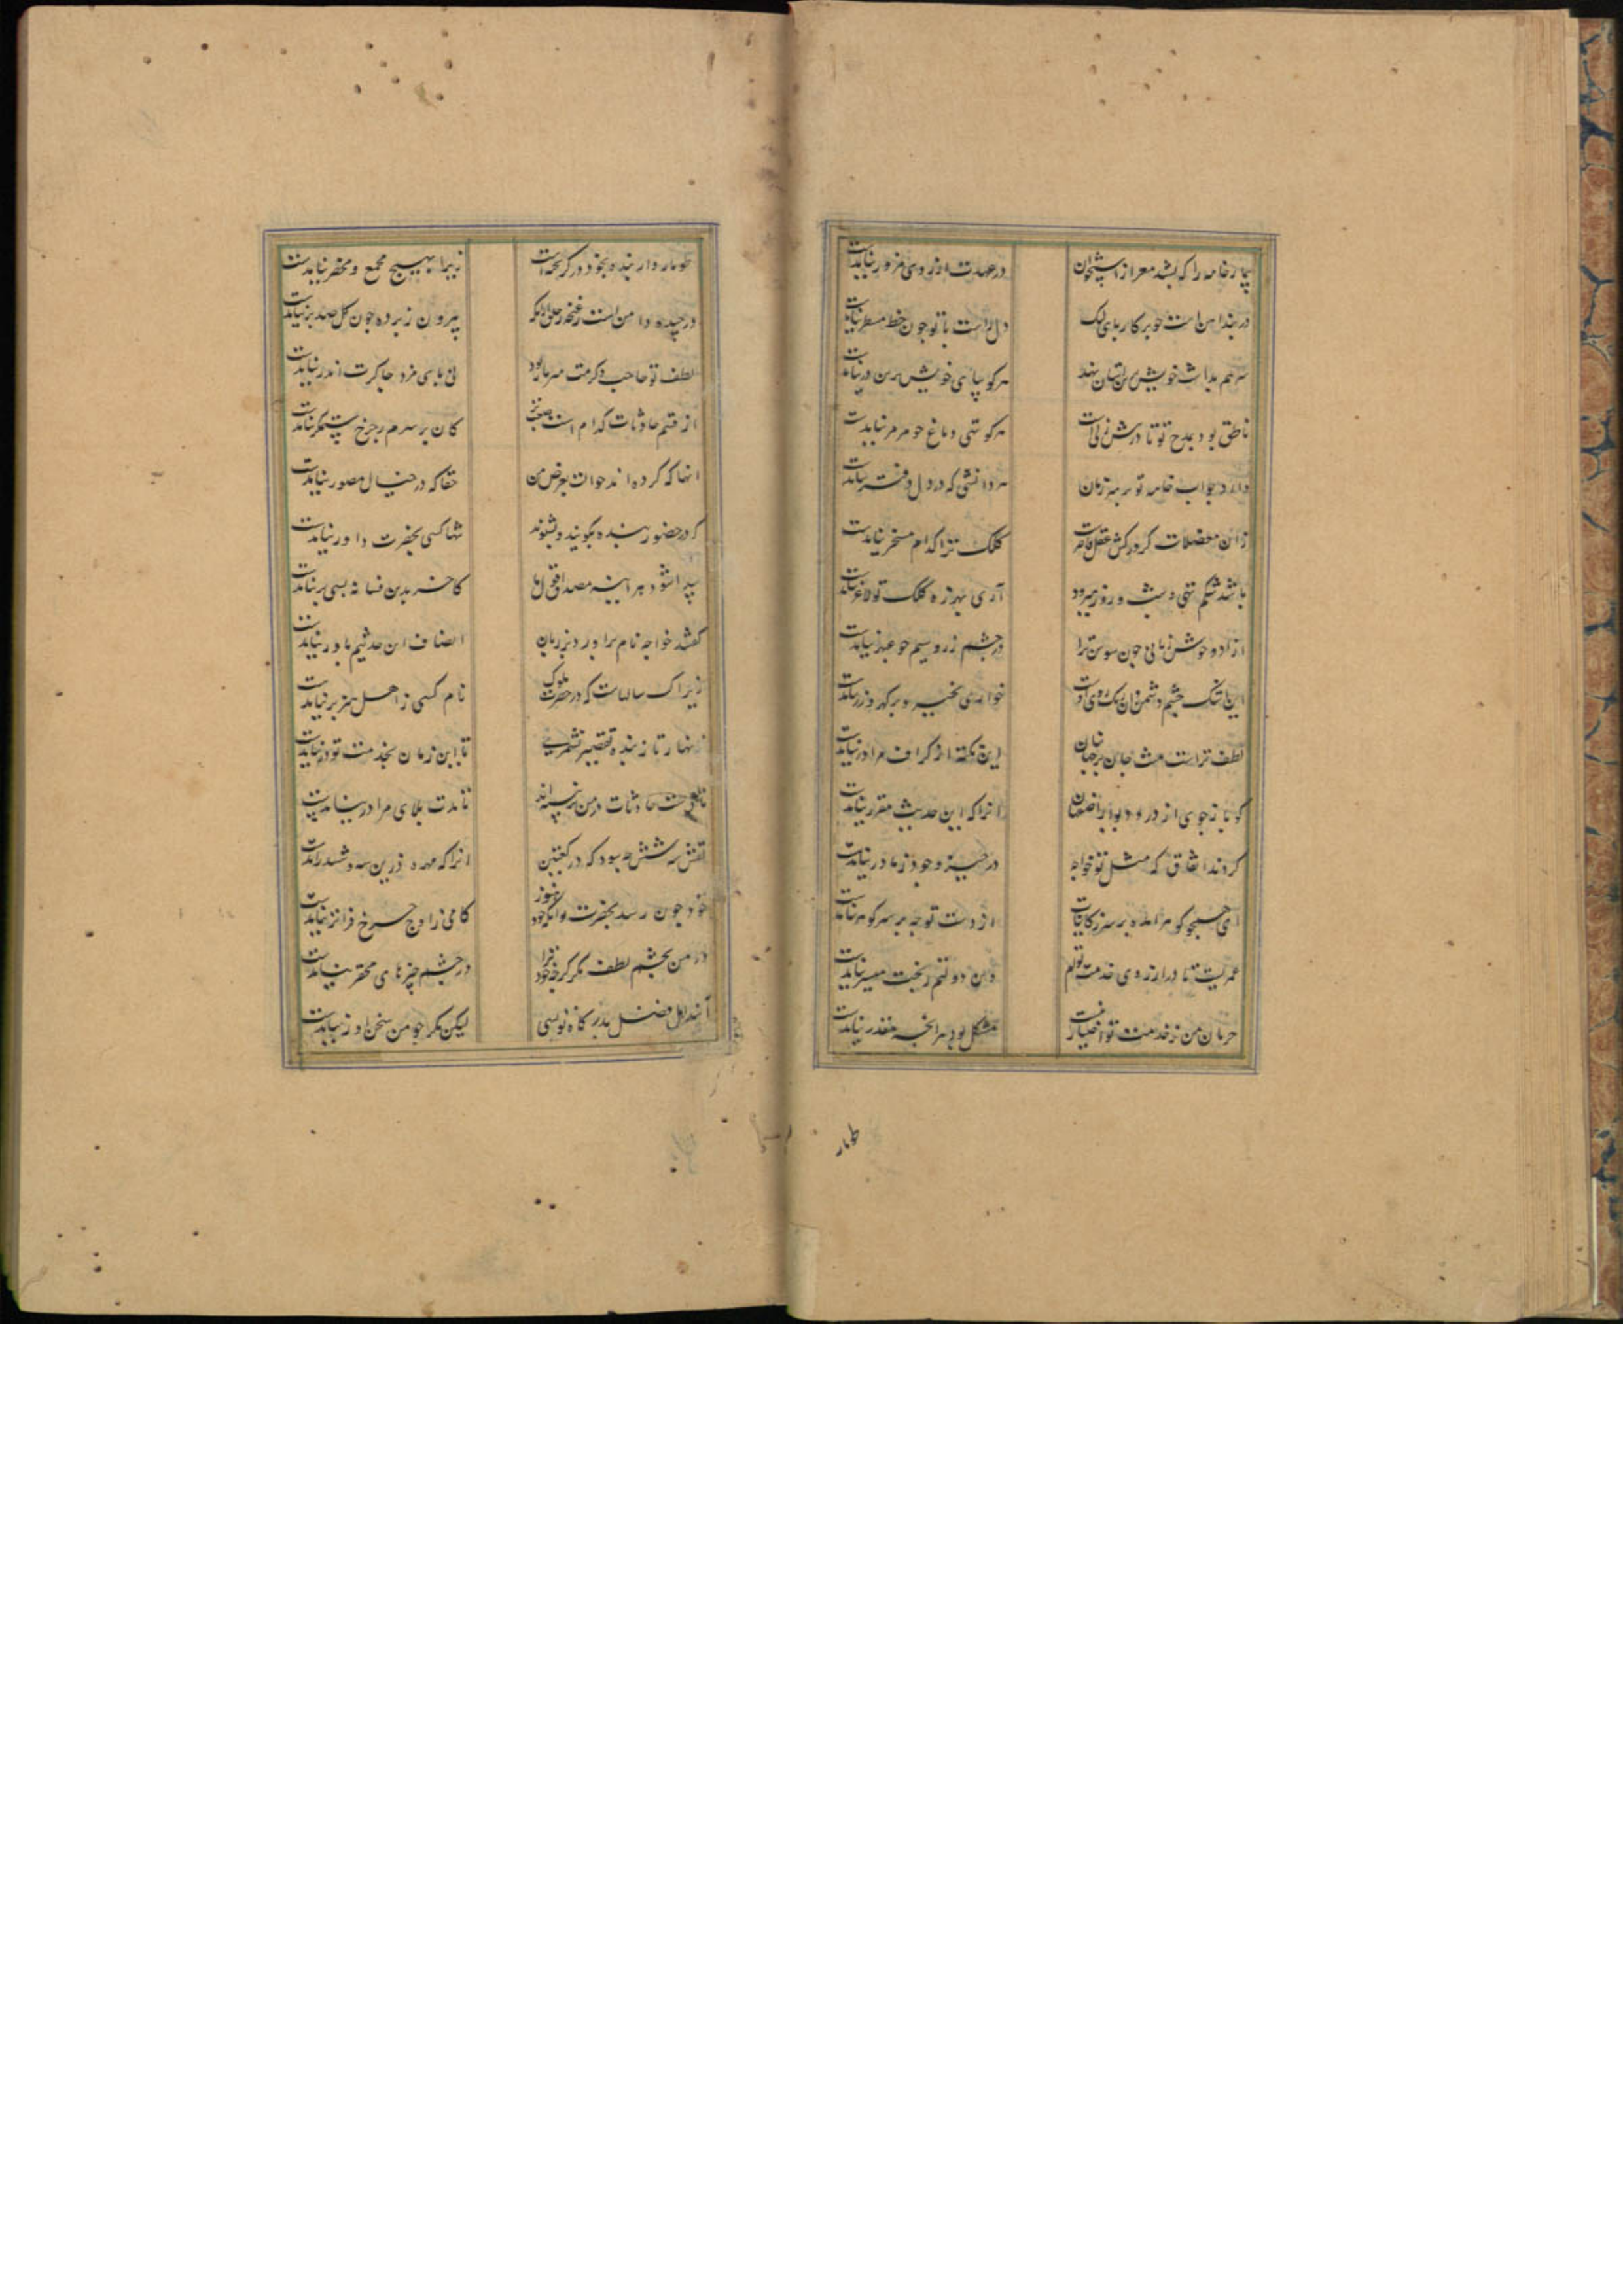 بیمار خامه را که بشد مغز از استخوان
در عهدت آرزوی مزور نیایدت
در بند این است چو پرکار پای لک
دل راست با تو چون خط مسطر نیایدت
سر هم بدان خویش
هرکو بپای خویش برین در نیایدت
ناطق بود بمدح تو تا در
هرکو تهی دماغ چو مزمر نیایدت
داند جواب خامه تو بر سر زبان
هر دانشی که در دل دفتر نیایدت
زان معضلات کز درکش عقل قاصر
کلک ترا کدام مسخر نیایدت
باشد شکم تهی و شب و روز میرود
آری بهرزه کلک تو لاغر نیایدت
آزاده خوش زبانی چون سوسن ترا
در چشم زر و سیم چو عبهر نیایدت
این تنگ چشم دشمن
خواری بخیره بر گهر و زر نیایدت
لطف تراست منت جان بر جهانیان
این نکته از گزاف مرا در نیایدت
گو باز جوی از در و دیوار اصفهان
آنرا که این حدیث مقرر نیایدت
کردند اتفاق که مثل تو خواجه
در حیز وجود ز مادر نیایدت
ای جستجو گو هر آمده بر سر
از دست تو چه بر سر گوهر نیایدت
عمریست تا در آرزوی خدمت توام
وین دولتم ز بخت میسر نیایدت
حرمان من ز خدمت تو اختیار نیست
مشکل بود هر آنچه مقدر نیایدت
طومار
طومار وار بنده بخود در گریخته است
زیرا بهیچ مجمع و محضر نیایدت
در چیده دامن است غنچه
بیرون ز پرده چون گل صد بر نیایدت
لطف تو صاحب و کرمت
بی پای مزد چاکرت اندر نیایدت
از قسم حادثات کدام است صعبتر
کان بر سرم ز چرخ ستمگر نیایدت
آنها که کرده اند حوادث بعرض من
حقا که در خیال مصور نیایدت
گر در حضور بنده بگویند و بشنوند
شها کسی بحضرت داور نیایدت
پیدا شود هر آینه مصداق
کاخر بدین فسانه بسی بر نیایدت
گفتند خواجه نام ترا ورد بر زبان
انصاف این حدیثم باور نیایدت
زیراک سالهاست که در حضرت ملوک
نام کسی ز اهل هنر بر نیایدت
زنهار تا ز بنده تقصیر نشمری
تا این زمان بخدمت تو
حادثات در من
تا مدت بلای مرا در نیایدت
نقش سه شش چه سود که در کعبتین
آنرا که مهره
خود چون رسد بحضرت
کامی ز اوج چرخ فراتر نیایدت
در من بچشم لطف نگر گرچه خود ترا
در چشم چیزهای محقر نیایدت
آیند اهل فضل بدرگاه تو بسی
لیکن مگر چو من سخن آور نیایدت